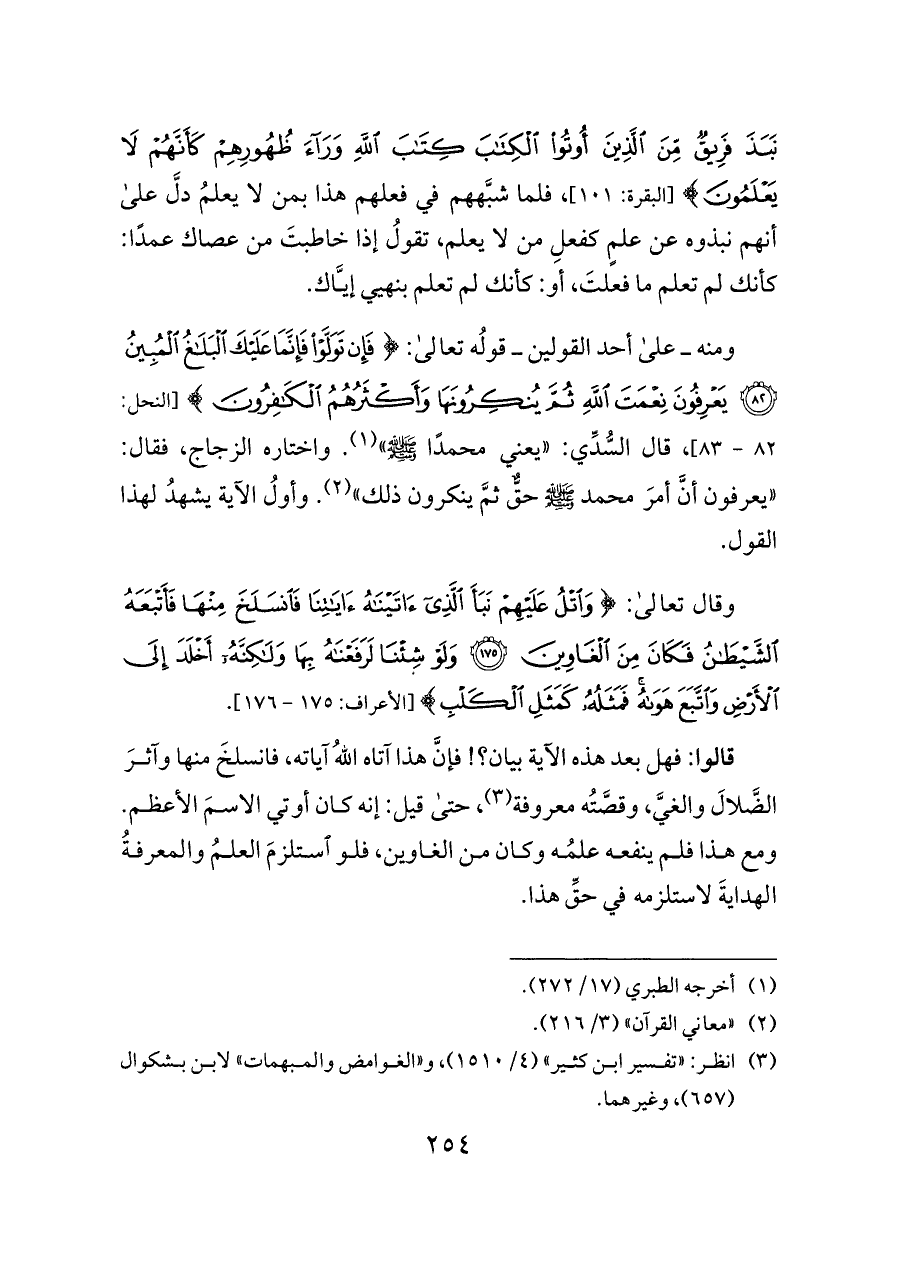 نَبَذَ فَرِيقٌ مِّنَ ٱلَّذِينَ أُوتُوا۟ ٱلْكِتَٰبَ كِتَٰبَ ٱللَّهِ وَرَآءَ ظُهُورِهِمْ كَأَنَّهُمْ لَا
يَعْلَمُونَ ﴾ [البقرة: ١٠١]، فلما شبَّههم في فعلهم هذا بمن لا يعلمُ دلَّ علىٰ
أنهم نبذوه عن علمٍ كفعلِ من لا يعلم، تقولُ إذا خاطبتَ من عصاك عمدًا:
كأنك لم تعلم ما فعلتَ، أو: كأنك لم تعلم بنهيي إيَّاك.
ومنه ـ علىٰ أحد القولين ـ قولُه تعالىٰ: ﴿ فَإِن تَوَلَّوْا۟ فَإِنَّمَا عَلَيْكَ ٱلْبَلَٰغُ ٱلْمُبِينُ
(٨٢) يَعْرِفُونَ نِعْمَتَ ٱللَّهِ ثُمَّ يُنكِرُونَهَا وَأَكْثَرُهُمُ ٱلْكَٰفِرُونَ ﴾ [النحل:
٨٢ - ٨٣]، قال السُّدِّي: «يعني محمدًا ﷺ»(١). واختاره الزجاج، فقال:
«يعرفون أنَّ أمرَ محمد ﷺ حقٌّ ثمَّ ينكرون ذلك»(٢). وأولُ الآية يشهدُ لهذا
القول.
وقال تعالىٰ: ﴿ وَٱتْلُ عَلَيْهِمْ نَبَأَ ٱلَّذِىٓ ءَاتَيْنَٰهُ ءَايَٰتِنَا فَٱنسَلَخَ مِنْهَا فَأَتْبَعَهُ
ٱلشَّيْطَٰنُ فَكَانَ مِنَ ٱلْغَاوِينَ (١٧٥) وَلَوْ شِئْنَا لَرَفَعْنَٰهُ بِهَا وَلَٰكِنَّهُۥٓ أَخْلَدَ إِلَى
ٱلْأَرْضِ وَٱتَّبَعَ هَوَىٰهُ ۚ فَمَثَلُهُۥ كَمَثَلِ ٱلْكَلْبِ ﴾ [الأعراف: ١٧٥ - ١٧٦].
قالوا: فهل بعد هذه الآية بيان؟! فإنَّ هذا آتاه اللهُ آياته، فانسلخَ منها وآثرَ
الضَّلالَ والغيَّ، وقصَّتُه معروفة(٣)، حتىٰ قيل: إنه كان أوتي الاسمَ الأعظم.
ومع هذا فلم ينفعه علمُه وكان من الغاوين، فلو ٱستلزمَ العلمُ والمعرفةُ
الهدايةَ لاستلزمه في حقِّ هذا.
(١) أخرجه الطبري (١٧/ ٢٧٢).
(٢) «معاني القرآن» (٣/ ٢١٦).
(٣) انظر: «تفسير ابن كثير» (٤/ ١٥١٠)، و«الغوامض والمبهمات» لابن بشكوال
(٦٥٧)، وغيرهما.
٢٥٤